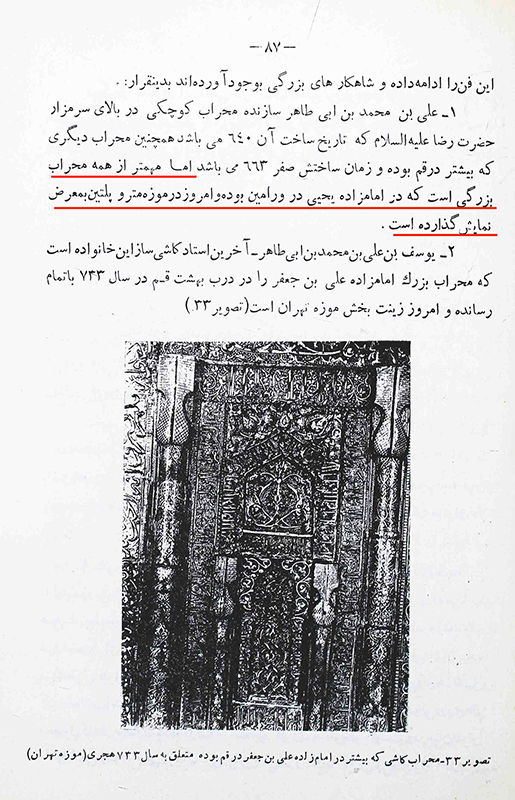 — ۸۷ —
این فن‌را ادامه‌داده و شاهکار های بزرگی بوجودآورده‌اند بدینقرار: .
۱ـ علی بن محمد بن ابی طاهر سازنده محراب کوچکی در بالای سرمزار
حضرت رضا علیه‌السلام که تاریخ ساخت آن ۶۴۰ می باشد همچنین محراب دیگری
که بیشتر درقم بوده و زمان ساختش صفر ۶۶۳ می باشد اما مهمتر از همه محراب
بزرگی است که در امامزاده یحیی در ورامین بوده و امروز در موزه مترو پلتین بمعرض
نمایش گذارده است .
۲ـ یوسف بن علی بن محمد بن ابی طاهر ـ آخرین استاد کاشی ساز این خانواده است
که محراب بزرك امامزاده علی بن جعفر را در درب بهشت قم در سال ۷۴۳ باتمام
رسانده و امروز زینت بخش موزه تهران است (تصویر ۳۳)
تصویر ۳۳ـ محراب کاشی که بیشتر در امام‌زاده علی بن جعفر در قم بوده متعلق به سال ۷۴۳ هجری (موزه تهران)